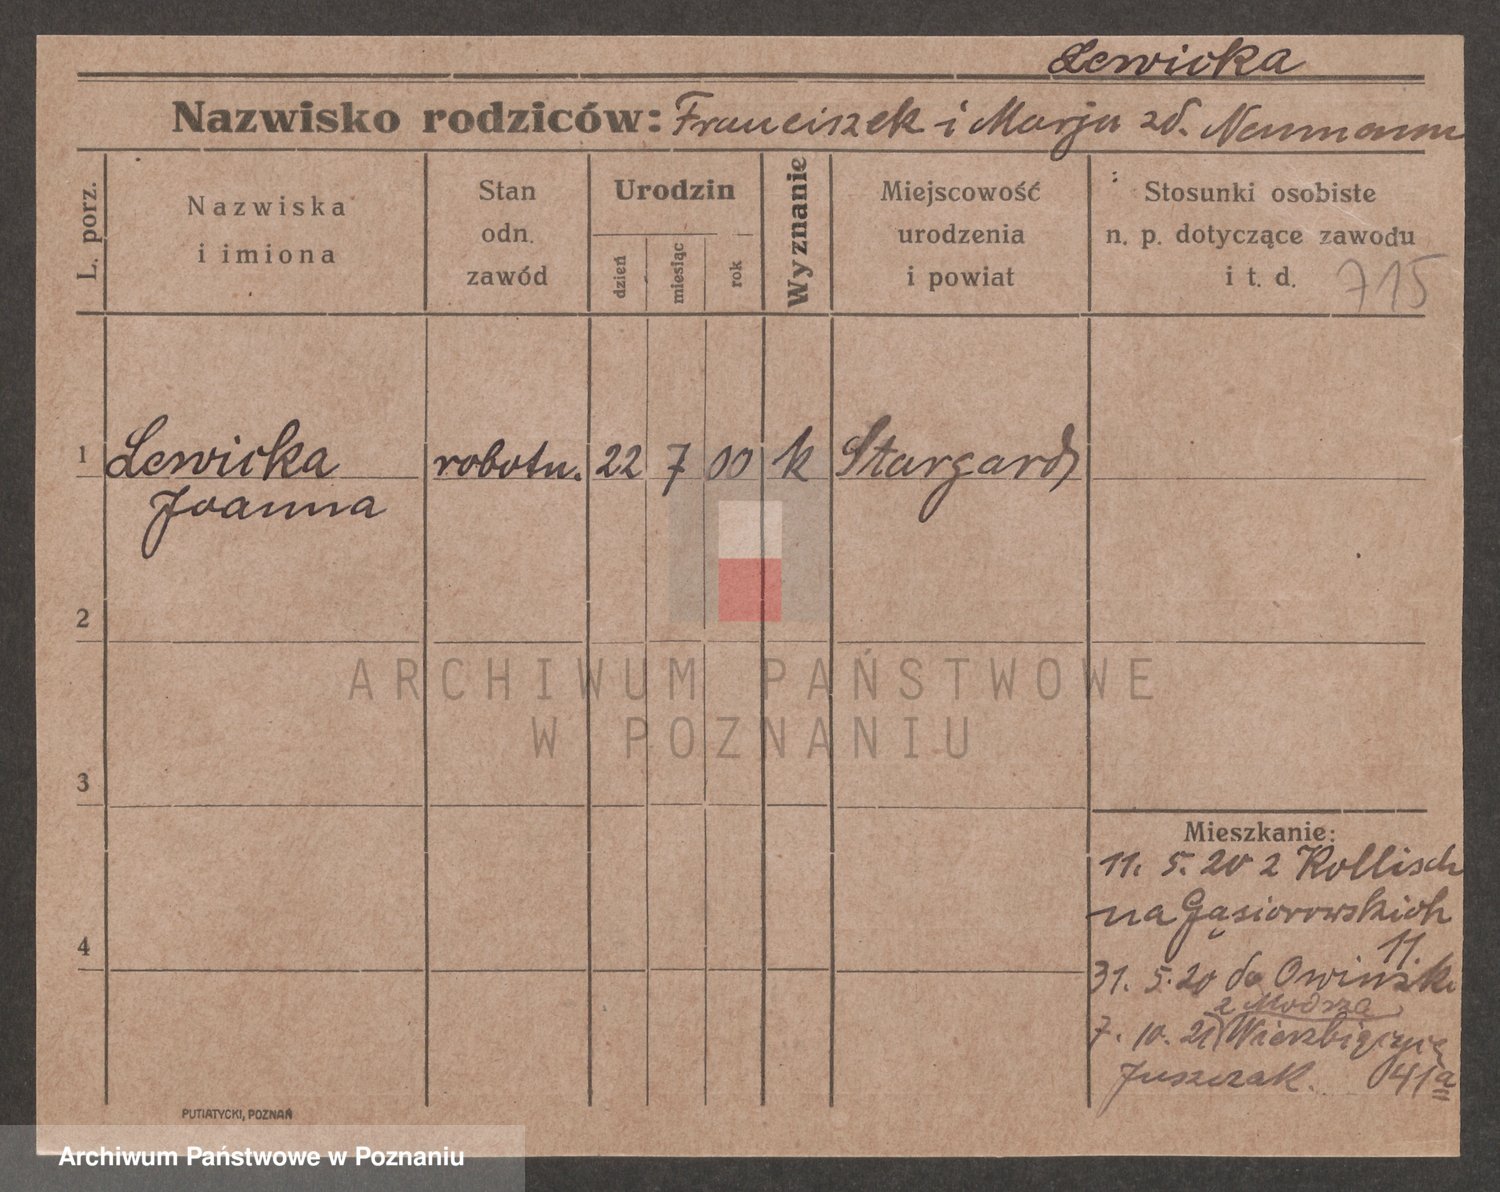 Lewicka
Nazwisko rodziców: Franciszek i Marja zd. Neumann
L. porz.
Nazwiska
i imiona
Stan
odn.
zawód
Urodzin
dzień
miesiąc
rok
Wyznanie
Miejscowość
urodzenia
i powiat
Stosunki osobiste
n. p. dotyczące zawodu
i t. d.
715
1 Lewicka robotn. 22 7 00 k Stargard
Joanna
2
3
4
ARCHIWUM PAŃSTWOWE
W POZNANIU
Mieszkanie:
11. 5. 20 z Kollisch
na Gąsiorowskich
11.
31. 5. 20 do Owinsk
z Modrza
7. 10. 21 Wierzbięcice
Juszczak. 41a
PUTIATYCKI, POZNAŃ
Archiwum Państwowe w Poznaniu